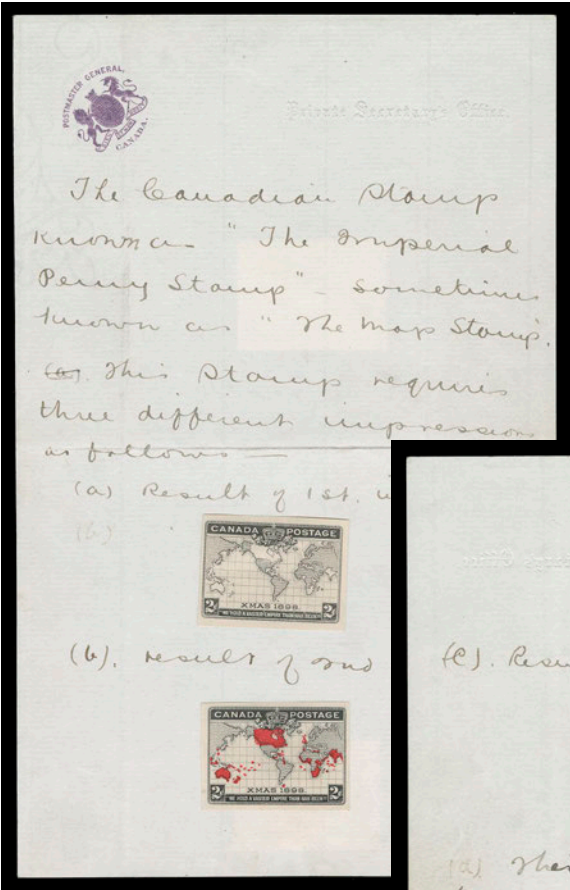 POSTMASTER GENERAL.
CANADA.
Private Secretary's Office
The Canadian Stamp
known as "The Imperial
Penny Stamp" - sometimes
known as "The Map Stamp".
(a). This Stamp requires
three different impressions
as follows —
(a) Result of 1st.
(b)
CANADA POSTAGE
XMAS 1898
2 2
"WE HOLD A VASTER EMPIRE THAN HAS BEEN"
(b). result of 2nd
CANADA POSTAGE
XMAS 1898
2 2
"WE HOLD A VASTER EMPIRE THAN HAS BEEN"
(C). Resu
(d) Ther